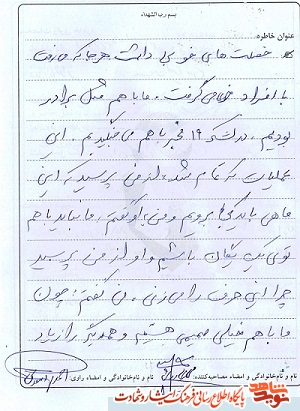 بسم رب الشهداء
عنوان خاطره:
خصلت های خوبی داشت هر جا که می رفت
با افراد خو می گرفت. ما با هم مثل برادر
بودیم. در لشکر ۱۹ فجر با هم می جنگیدیم. این
عملیات که تمام شد، از من پرسید که این
ماهی باید کجا برویم و من به او گفتم، ما نباید با هم
توی یک گردان باشیم و او از من پرسید
چرا این حرف را می زنی، من گفتم: چون
ما با هم خیلی صمیمی هستیم و همدیگر را زیاد
نام و نام خانوادگی و امضاء مصاحبه کننده:
نام و نام خانوادگی و امضاء راوی:
نوید شاهد
پایگاه اطلاع رسانی فرهنگ ایثار و شهادت